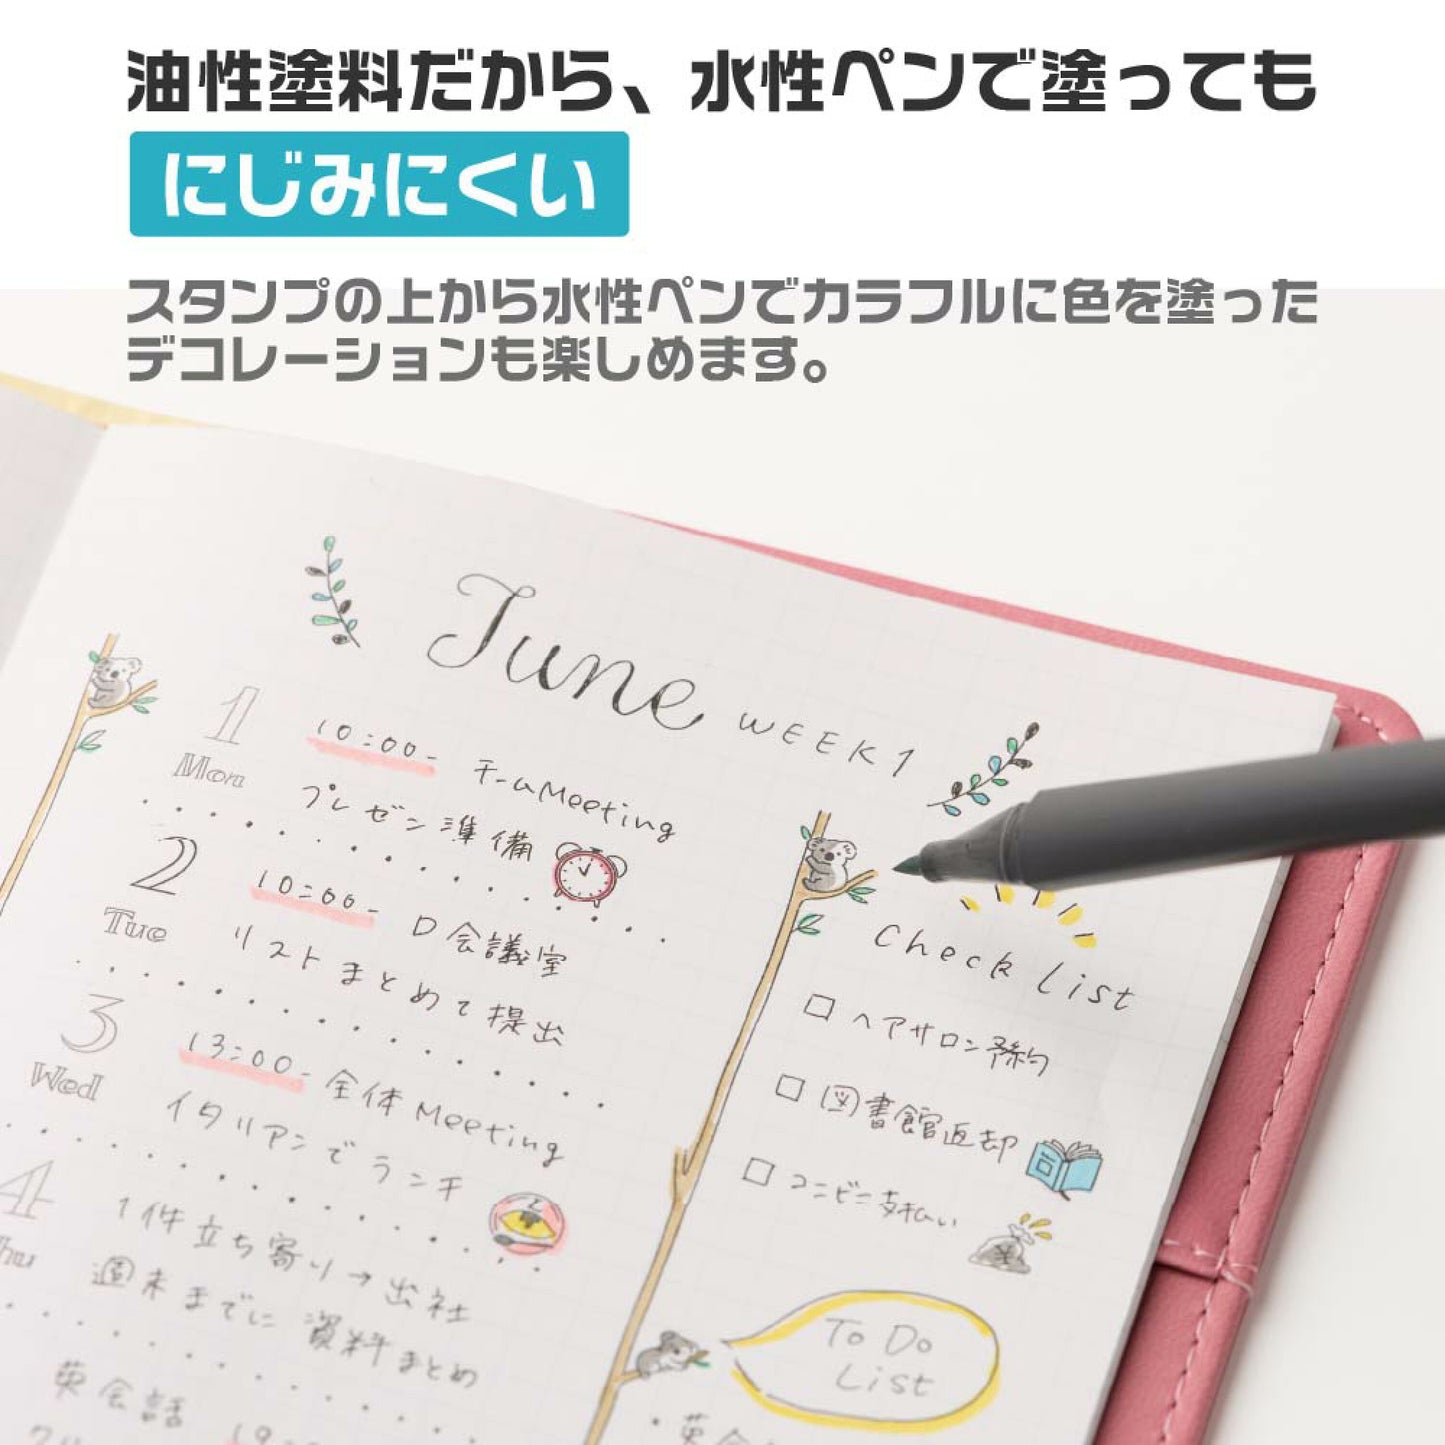 油性塗料だから、水性ペンで塗っても
にじみにくい
スタンプの上から水性ペンでカラフルに色を塗った
デコレーションも楽しめます。
June WEEK1
1
Mon
10:00- チームMeeting
プレゼン準備
2
Tue
10:00- D会議室
リストまとめて提出
3
Wed
13:00- 全体Meeting
イタリアンでランチ
4
1件立ち寄り→出社
週末までに資料まとめ
英会話
Check List
□ ヘアサロン予約
□ 図書館返却
□ コンビニ支払い
To Do
List